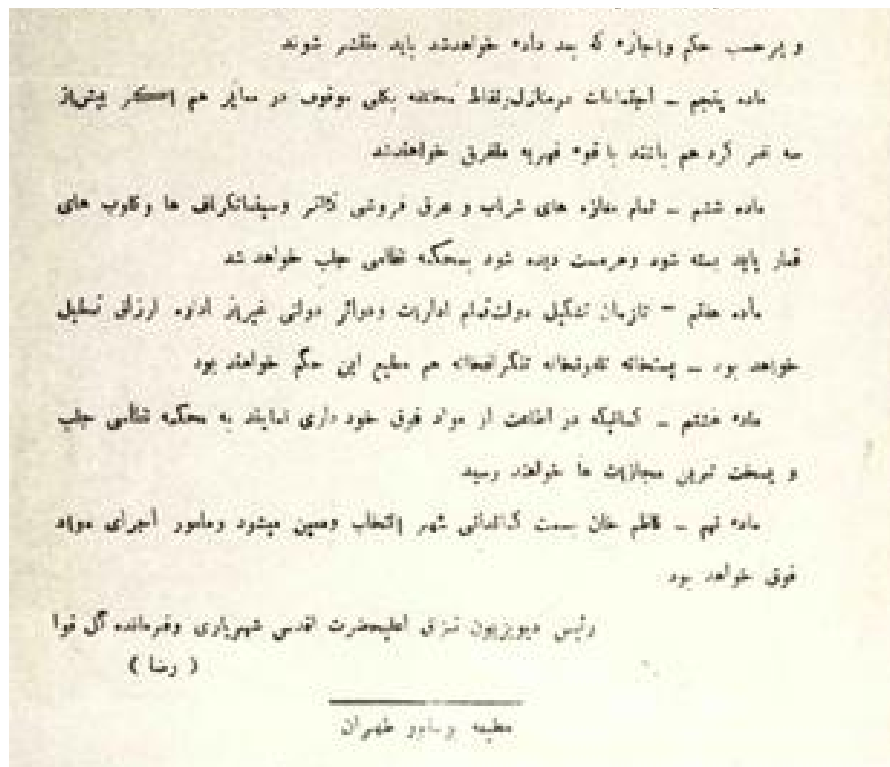 و بر حسب حکم و اجازه که بعد داده خواهد شد باید منتشر شوند
ماده پنجم ـ اجتماعات در منازل و نقاط مختلفه بکلی موقوف در معابر هم اگر بیش از
سه نفر گرد هم باشند با قوه قهریه متفرق خواهند شد
ماده ششم ـ تمام مغازه های شراب و عرق فروشی تآتر و سینماتگراف ها و کلوب های
قمار باید بسته شود و هر مست دیده شود بمحکمه نظامی جلب خواهد شد
ماده هفتم ـ تا زمان تشکیل دولت تمام ادارات و دوائر دولتی غیر از اداره ارزاق تعطیل
خواهد بود ـ پستخانه تلفونخانه تلگرافخانه هم مطیع این حکم خواهند بود
ماده هشتم ـ کسانیکه در اطاعت از مواد فوق خود داری نمایند به محکمه نظامی جلب
و بسخت ترین مجازات ها خواهند رسید
ماده نهم ـ کاظم خان بسمت کماندانی شهر انتخاب و معین میشود و مامور اجرای مواد
فوق خواهد بود
رئیس دیویزیون قزاق اعلیحضرت اقدس شهریاری و فرمانده کل قوا
( رضا )
مطبعه طهران